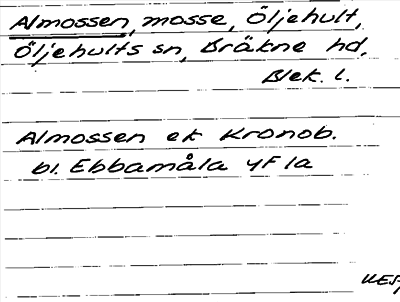 Almossen, mosse, Öljehult,
Öljehults sn, Bräkne hd,
Blek. l.
Almossen ek Kronob.
bl. Ebbamåla 4F 1a